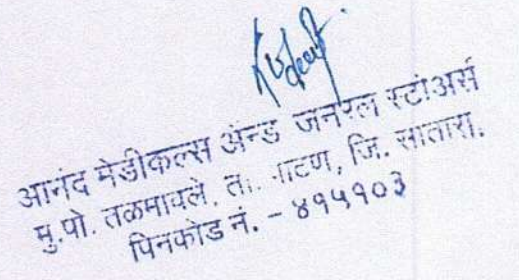 आनंद मेडीकल्स अॅन्ड जनरल स्टोअर्स
मु.पो. तळमावले. ता. पाटण, जि. सातारा.
पिनकोड नं. – ४१५१०३